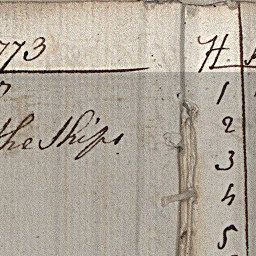 1773
the Ships
H
1
2
3
4
5